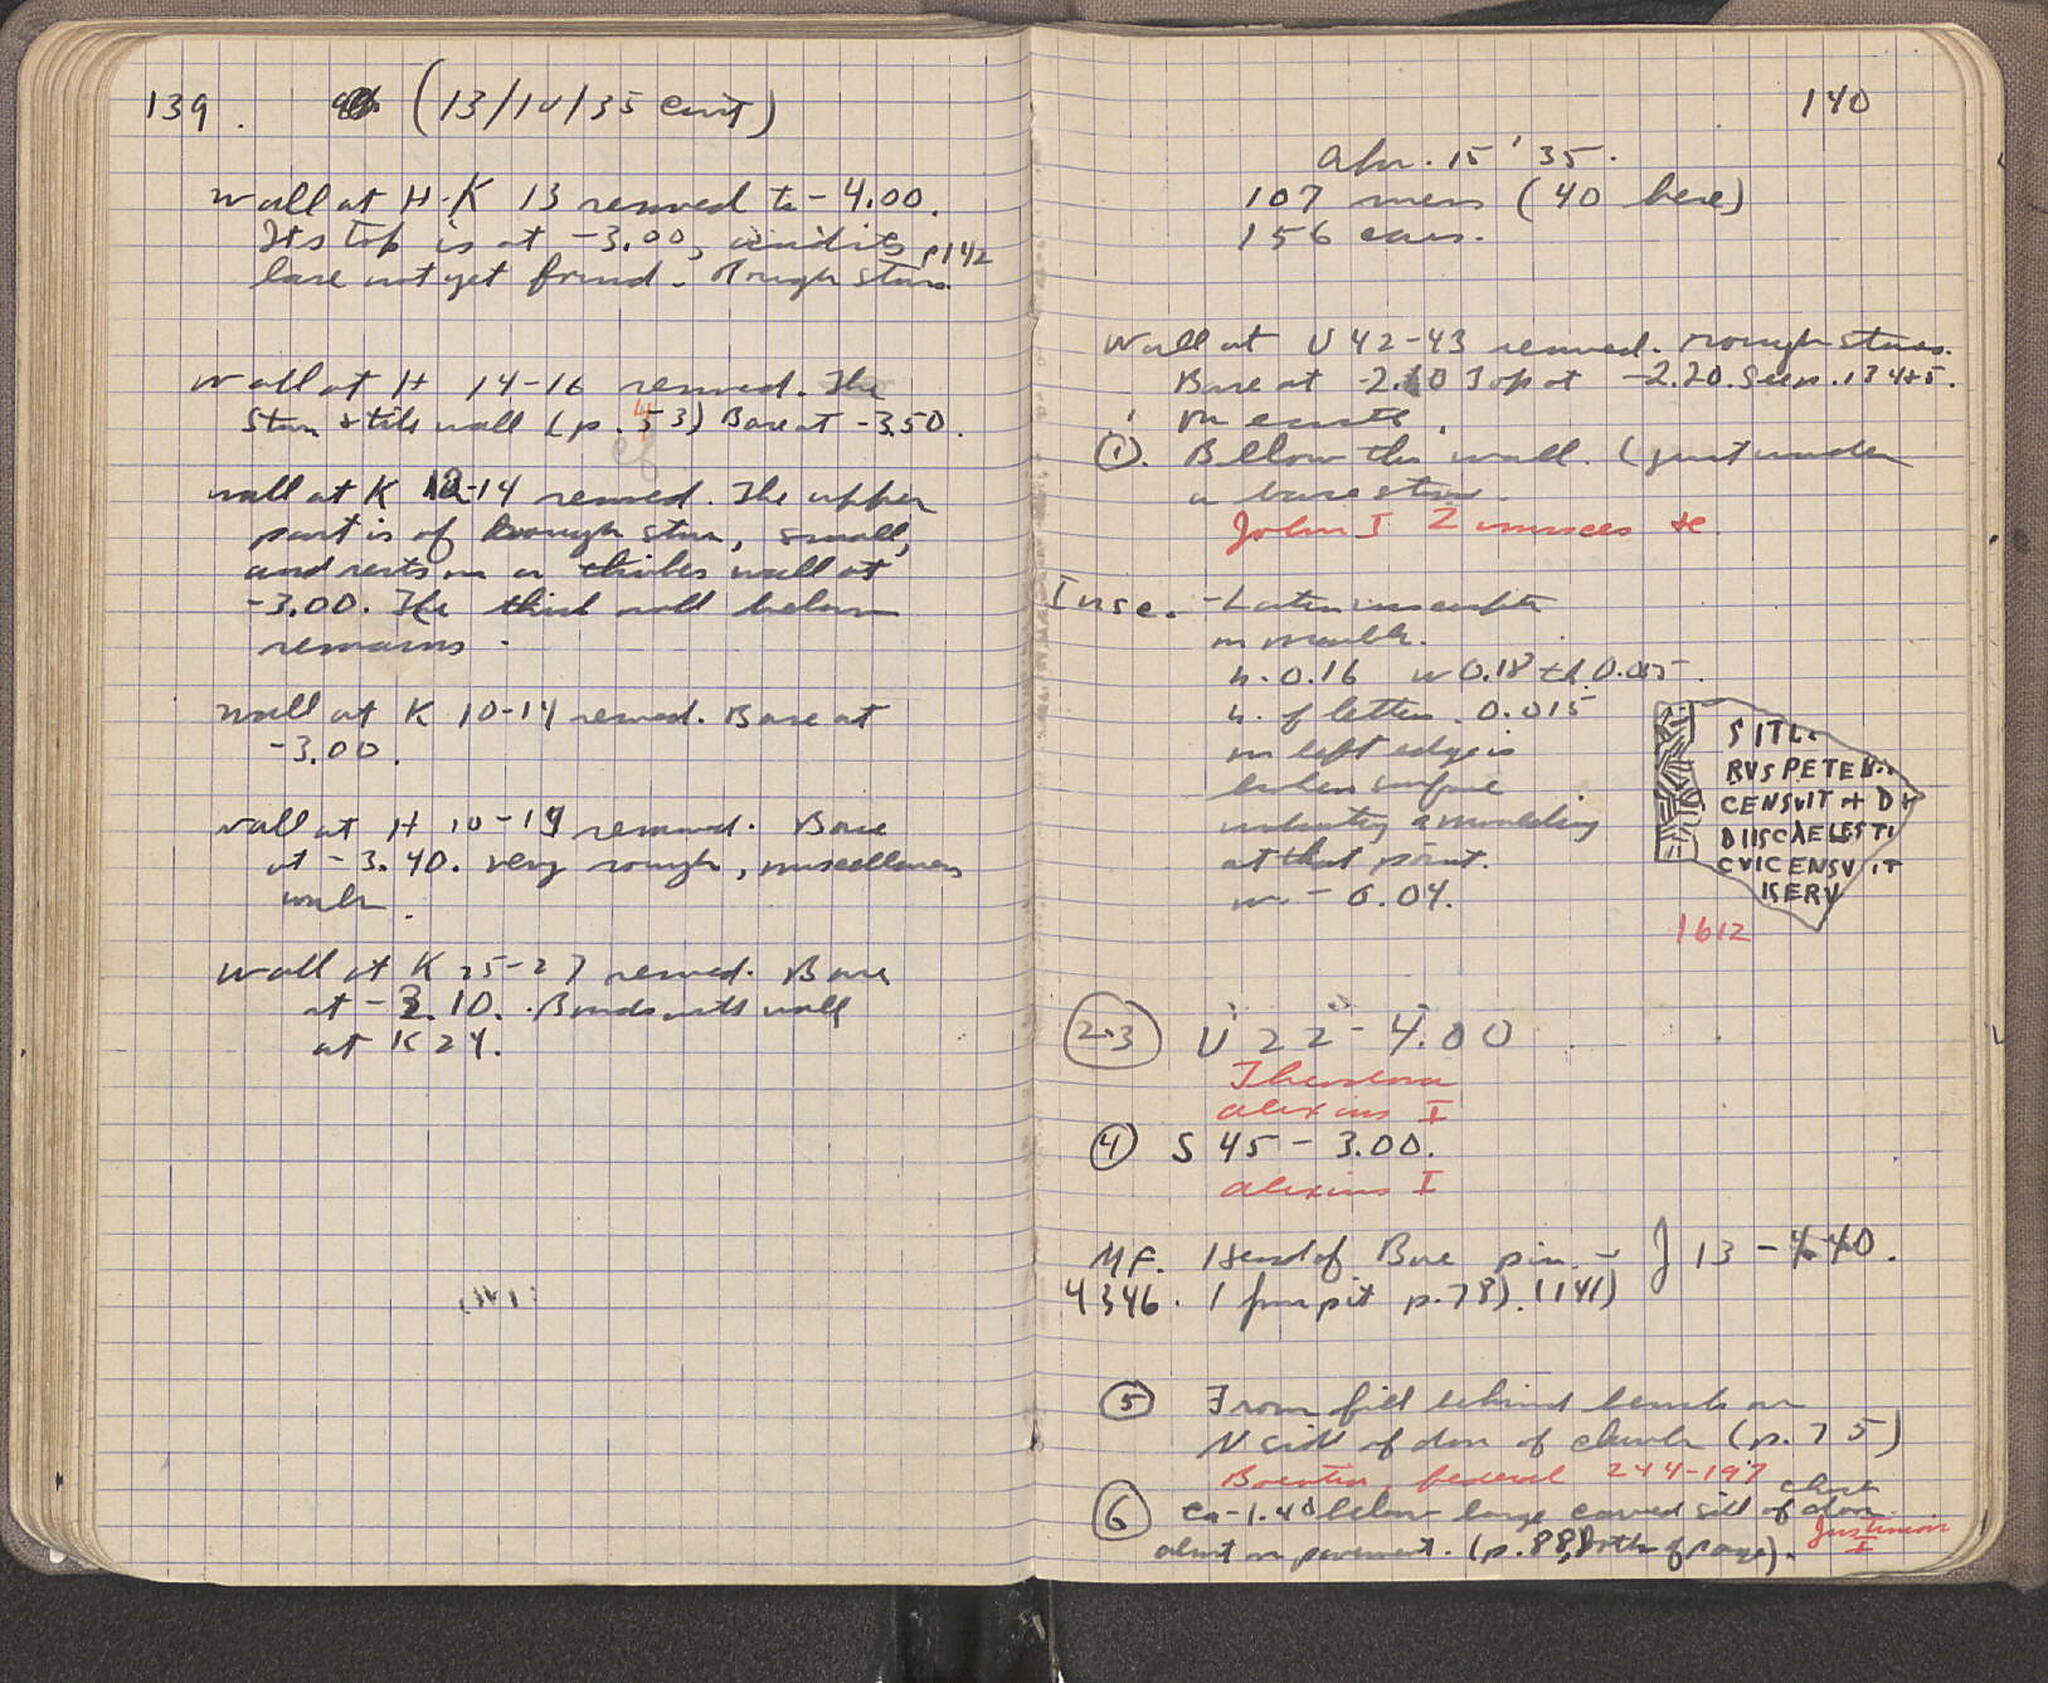 139. (13/IV/35 cont)
Wall at H-K 13 removed to -4.00.
Its top is at -3.00, and its p142
base not yet found. Rough stones.
Wall at H 14-16 removed. The
Stone & tile wall (p. 53) Base at -3.50.
Wall at K 12-14 removed. The upper
part is of rough stone, small,
and rests on a thicker wall at
-3.00. The thick wall below
remains.
Wall at K 10-14 removed. Base at
-3.00.
Wall at H 10-19 removed. Base
at -3.40. Very rough, miscellaneous
walls.
Wall at K 25-27 removed. Base
at -3.10. Bonds with wall
at K 24.
140
Apr. 15 '35.
107 men (40 here)
156 cars.
Wall at U 42-43 removed. Rough stones.
Base at -2.60 Top at -2.20. See p. 134+5.
on earth.
①. Below the wall. (just under
a base stone.
John I Zimisces
Insc. - Latin inscription
on marble.
h. 0.16 w 0.18 th. 0.015.
h. of letters. 0.015
on left edge is
broken surface
indicating a moulding
at that point.
w. - 0.04.
SITL.
RVSPETEB..
CENSVIT + D
DIISCAELESTI
CVICENSVIT
KERV
1612
2.3 U 22 - 4.00
Theodora
Alexius I
④ S 45 - 3.00.
Alexius I
MF. Head of Bone pin. - J 13 - 4.40.
4346. 1 from pit p. 78). (141)
⑤ From fill behind bench on
N side of door of church (p. 75)
Boeotia, federal 244-197
⑥ Ca -1.40 below large carved sill of church door
about on pavement. (p. 88, bottom of page). Justinian
I